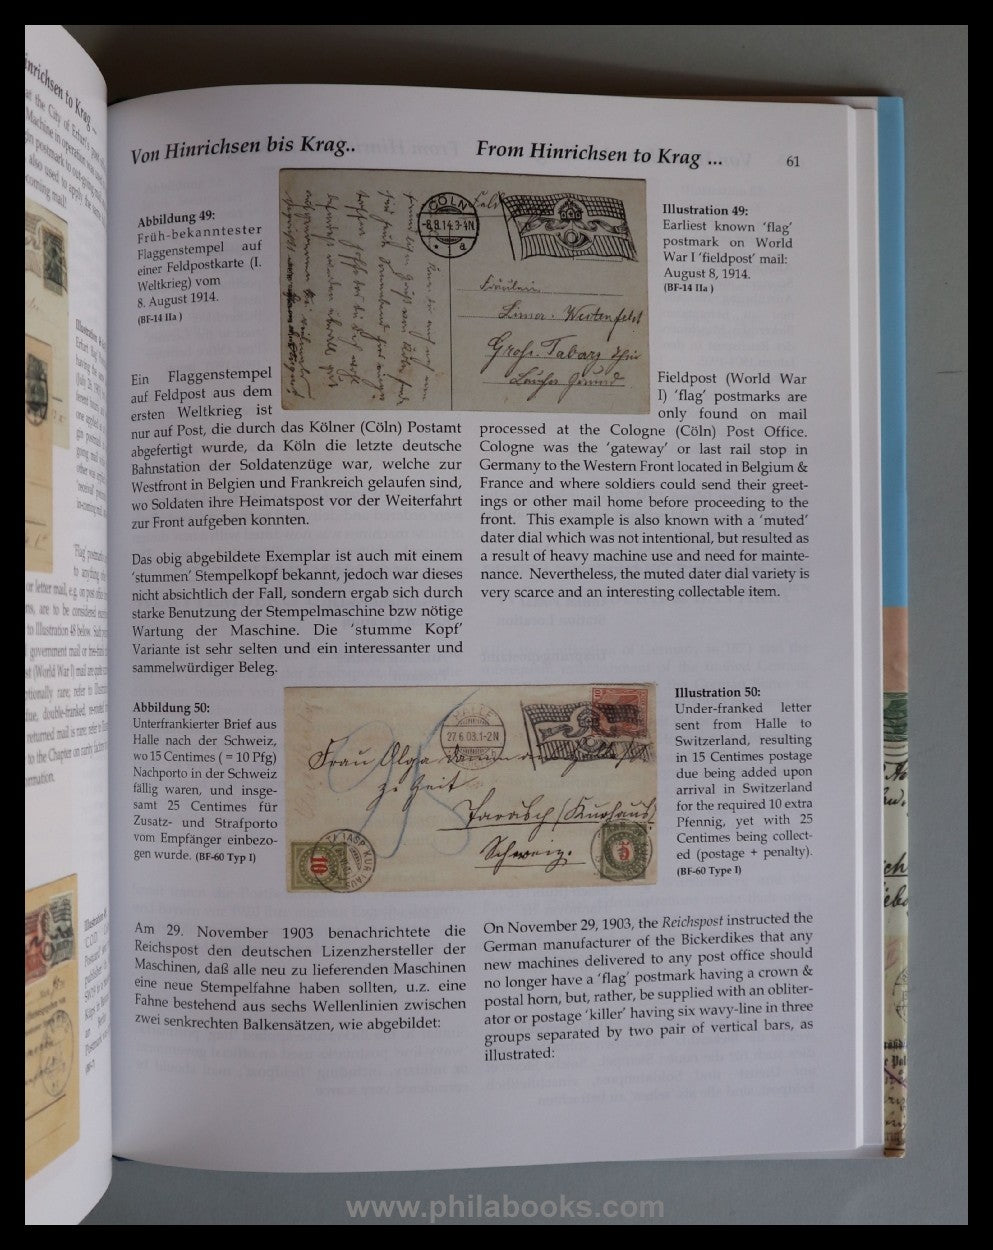 Von Hinrichsen bis Krag..
From Hinrichsen to Krag ...
61
Abbildung 49:
Früh-bekanntester
Flaggenstempel auf
einer Feldpostkarte (I.
Weltkrieg) vom
8. August 1914.
(BF-14 IIa )
CÖLN
-8.8.14.3-4N.
a
Illustration 49:
Earliest known 'flag'
postmark on World
War I 'fieldpost' mail:
August 8, 1914.
(BF-14 IIa )
Ein Flaggenstempel
auf Feldpost aus dem
ersten Weltkrieg ist
nur auf Post, die durch das Kölner (Cöln) Postamt
abgefertigt wurde, da Köln die letzte deutsche
Bahnstation der Soldatenzüge war, welche zur
Westfront in Belgien und Frankreich gelaufen sind,
wo Soldaten ihre Heimatspost vor der Weiterfahrt
zur Front aufgeben konnten.
Das obig abgebildete Exemplar ist auch mit einem
'stummen' Stempelkopf bekannt, jedoch war dieses
nicht absichtlich der Fall, sondern ergab sich durch
starke Benutzung der Stempelmaschine bzw nötige
Wartung der Maschine. Die 'stumme Kopf'
Variante ist sehr selten und ein interessanter und
sammelwürdiger Beleg.
Fieldpost (World War
I) 'flag' postmarks are
only found on mail
processed at the Cologne (Cöln) Post Office.
Cologne was the 'gateway' or last rail stop in
Germany to the Western Front located in Belgium &
France and where soldiers could send their greet-
ings or other mail home before proceeding to the
front. This example is also known with a 'muted'
dater dial which was not intentional, but resulted as
a result of heavy machine use and need for mainte-
nance. Nevertheless, the muted dater dial variety is
very scarce and an interesting collectable item.
Abbildung 50:
Unterfrankierter Brief aus
Halle nach der Schweiz,
wo 15 Centimes ( = 10 Pfg)
Nachporto in der Schweiz
fällig waren, und insge-
samt 25 Centimes für
Zusatz- und Strafporto
vom Empfänger einbezo-
gen wurde. (BF-60 Typ I)
HALLE
27.6.03.1-2N
Frau Olga
zu Zeit
Tarasp (Kurhaus)
Schweiz.
10
5
Illustration 50:
Under-franked letter
sent from Halle to
Switzerland, resulting
in 15 Centimes postage
due being added upon
arrival in Switzerland
for the required 10 extra
Pfennig, yet with 25
Centimes being collect-
ed (postage + penalty).
(BF-60 Type I)
Am 29. November 1903 benachrichtete die
Reichspost den deutschen Lizenzhersteller der
Maschinen, daß alle neu zu lieferenden Maschinen
eine neue Stempelfahne haben sollten, u.z. eine
Fahne bestehend aus sechs Wellenlinien zwischen
zwei senkrechten Balkensätzen, wie abgebildet:
On November 29, 1903, the Reichspost instructed the
German manufacturer of the Bickerdikes that any
new machines delivered to any post office should
no longer have a 'flag' postmark having a crown &
postal horn, but, rather, be supplied with an obliter-
ator or postage 'killer' having six wavy-line in three
groups separated by two pair of vertical bars, as
illustrated:
www.philabooks.com